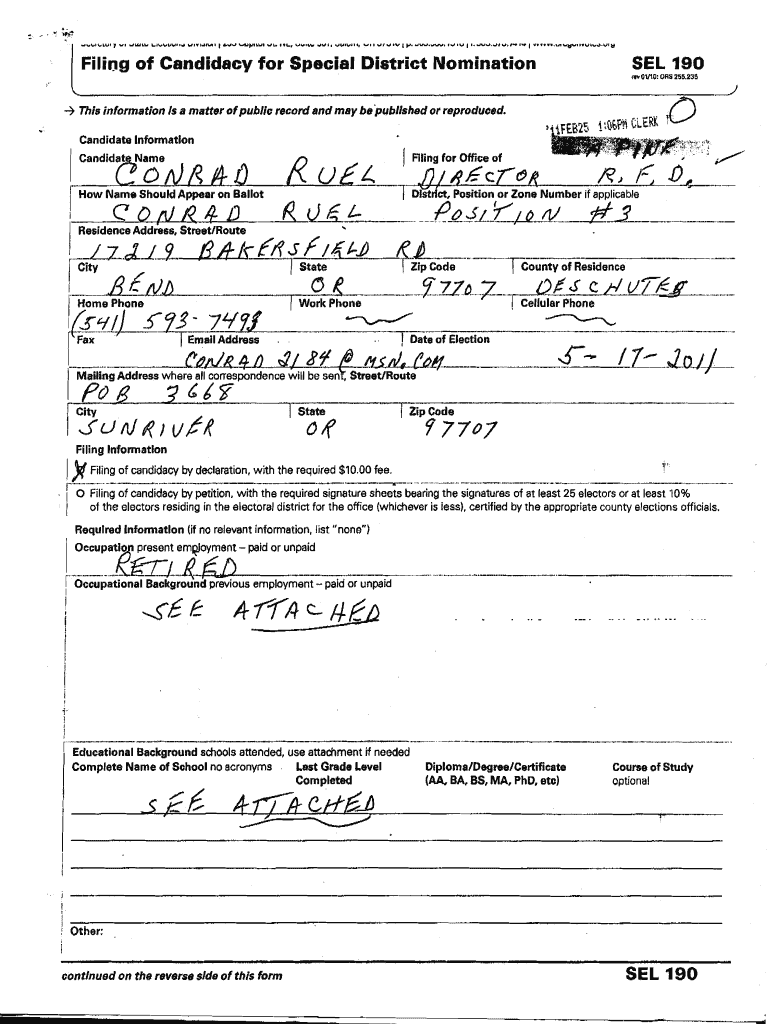 Filing of Candidacy for Special District Nomination SEL 190
rev 01/10: ORS 255.235
→ This information is a matter of public record and may be published or reproduced.
'11FEB25 1:06PM CLERK
Candidate Information
Candidate Name Filing for Office of
CONRAD RUEL DIRECTOR R.F.D.
How Name Should Appear on Ballot District, Position or Zone Number if applicable
CONRAD RUEL POSITION #3
Residence Address, Street/Route
17219 BAKERSFIELD RD
City State Zip Code County of Residence
BEND OR 97707 DESCHUTES
Home Phone Work Phone Cellular Phone
(541) 593-7493
Fax Email Address Date of Election
CONRAD2184@MSN.COM 5-17-2011
Mailing Address where all correspondence will be sent, Street/Route
POB 3668
City State Zip Code
SUNRIVER OR 97707
Filing Information
Filing of candidacy by declaration, with the required $10.00 fee.
O Filing of candidacy by petition, with the required signature sheets bearing the signatures of at least 25 electors or at least 10%
of the electors residing in the electoral district for the office (whichever is less), certified by the appropriate county elections officials.
Required Information (if no relevant information, list "none")
Occupation present employment – paid or unpaid
RETIRED
Occupational Background previous employment – paid or unpaid
SEE ATTACHED
Educational Background schools attended, use attachment if needed
Complete Name of School no acronyms Last Grade Level Diploma/Degree/Certificate Course of Study
Completed (AA, BA, BS, MA, PhD, etc) optional
SEE ATTACHED
Other:
continued on the reverse side of this form SEL 190